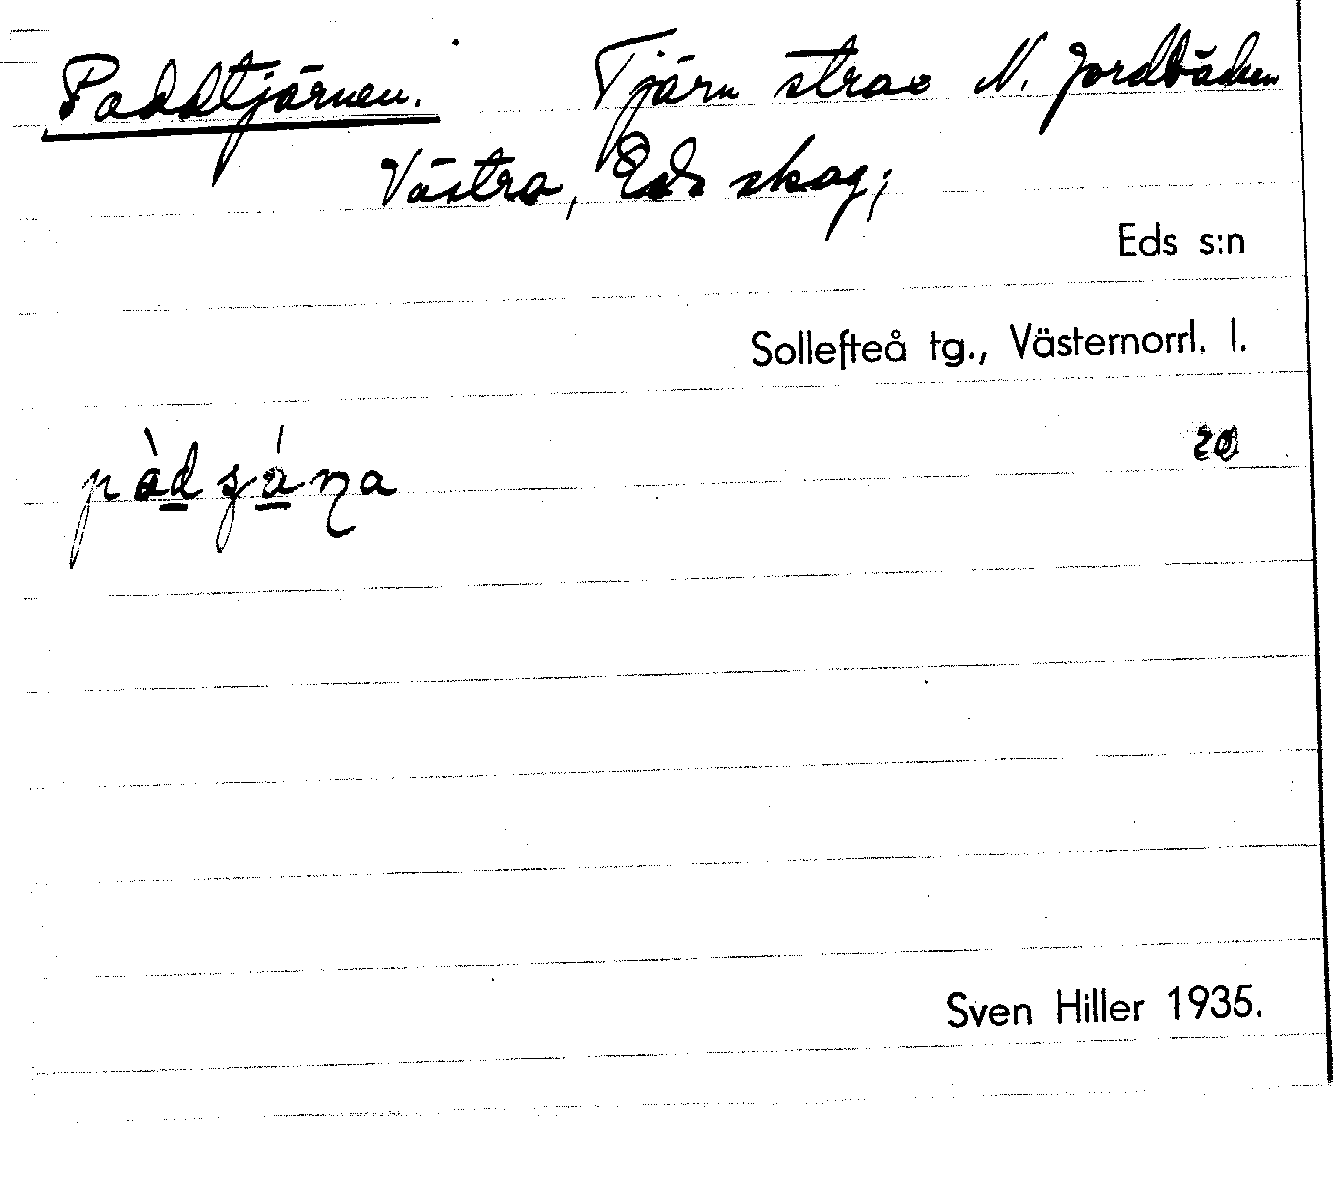 Paddtjärnen. Tjärn strax N. Jordbäcken
Västra, Eds skog;
Eds s:n
Sollefteå tg., Västernorrl. l.
20
Sven Hiller 1935.